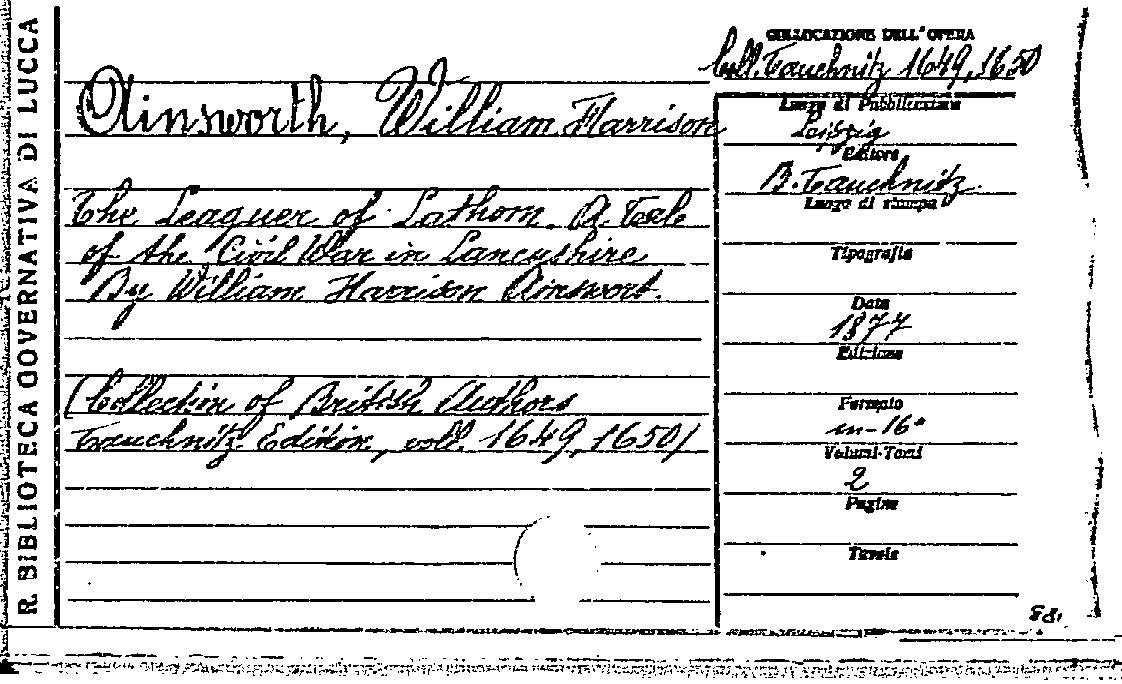 R. BIBLIOTECA GOVERNATIVA DI LUCCA
Ainsworth, William Harrison
The Leaguer of Lathom. A Tale
of the Civil War in Lancashire
By William Harrison Ainswort.
(Collection of British Authors
Tauchnitz Edition, voll. 1649, 1650)
COLLOCAZIONE DELL'OPERA
Coll. Tauchnitz 1649, 1650
Luogo di Pubblicazione
Leipzig
Editore
B. Tauchnitz
Luogo di stampa
Tipografia
Data
1877
Edizione
Formato
in-16°
Volumi-Tomi
2
Pagine
Tavole